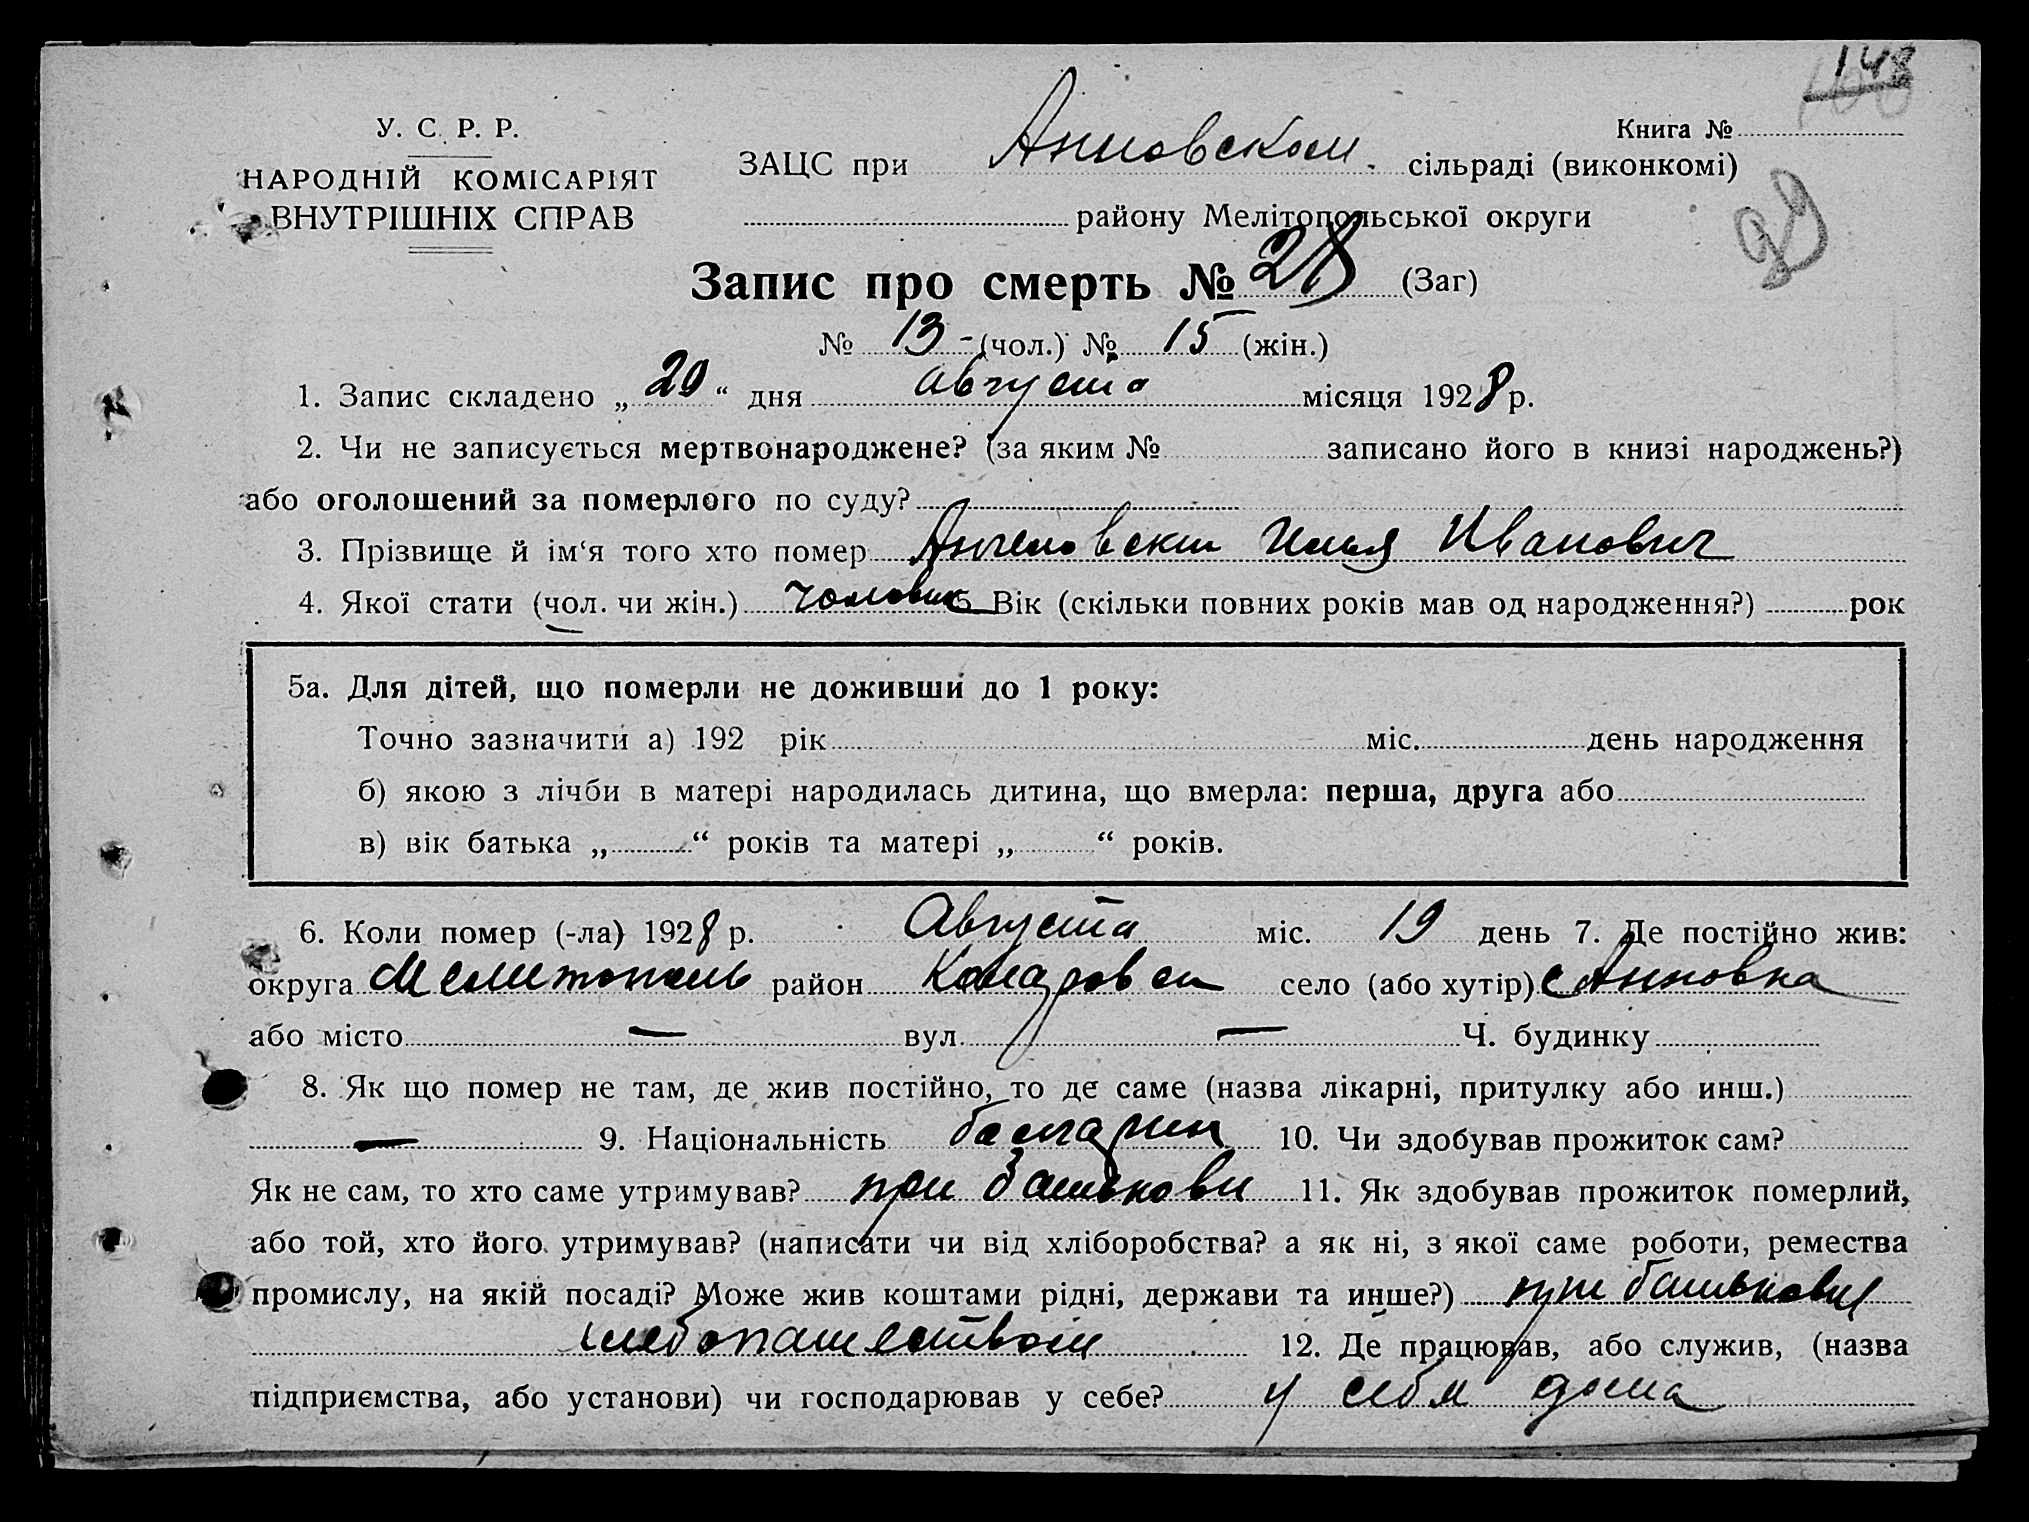 148
У. С. Р. Р.
Книга №
НАРОДНІЙ КОМІСАРІЯТ
ВНУТРІШНІХ СПРАВ
ЗАЦС при Анновском сільраді (виконкомі)
району Мелітопольської округи
Запис про смерть № 28 (Заг)
№ 13 - (чол.) № 15 (жін.)
1. Запис складено „ 20 “ дня августа місяця 1928 р.
2. Чи не записується мертвонароджене? (за яким № записано його в книзі народжень?)
або оголошений за померлого по суду?
3. Прізвище й ім‘я того хто помер Ангеловски Илья Иванович
4. Якої стати (чол. чи жін.) чоловик 5 Вік (скільки повних років мав од народження?) рок
5а. Для дітей, що померли не доживши до 1 року:
Точно зазначити а) 192 рік міс. день народження
б) якою з лічби в матері народилась дитина, що вмерла: перша, друга або
в) вік батька „ “ років та матері „ “ років.
6. Коли помер (-ла) 1928 р. Августа міс. 19 день 7. Де постійно жив:
округа Мелитополь район село (або хутір) с Анновка
або місто — вул. — Ч. будинку
8. Як що помер не там, де жив постійно, то де саме (назва лікарні, притулку або инш.)
— 9. Національність болгарин 10. Чи здобував прожиток сам?
Як не сам, то хто саме утримував? при батькови 11. Як здобував прожиток померлий,
або той, хто його утримував? (написати чи від хліборобства? а як ні, з якої саме роботи, ремества
промислу, на якій посаді? Може жив коштами рідні, держави та инше?) при батькови
хлебопашеством 12. Де працював, або служив, (назва
підприємства, або установи) чи господарював у себе? у себя дома